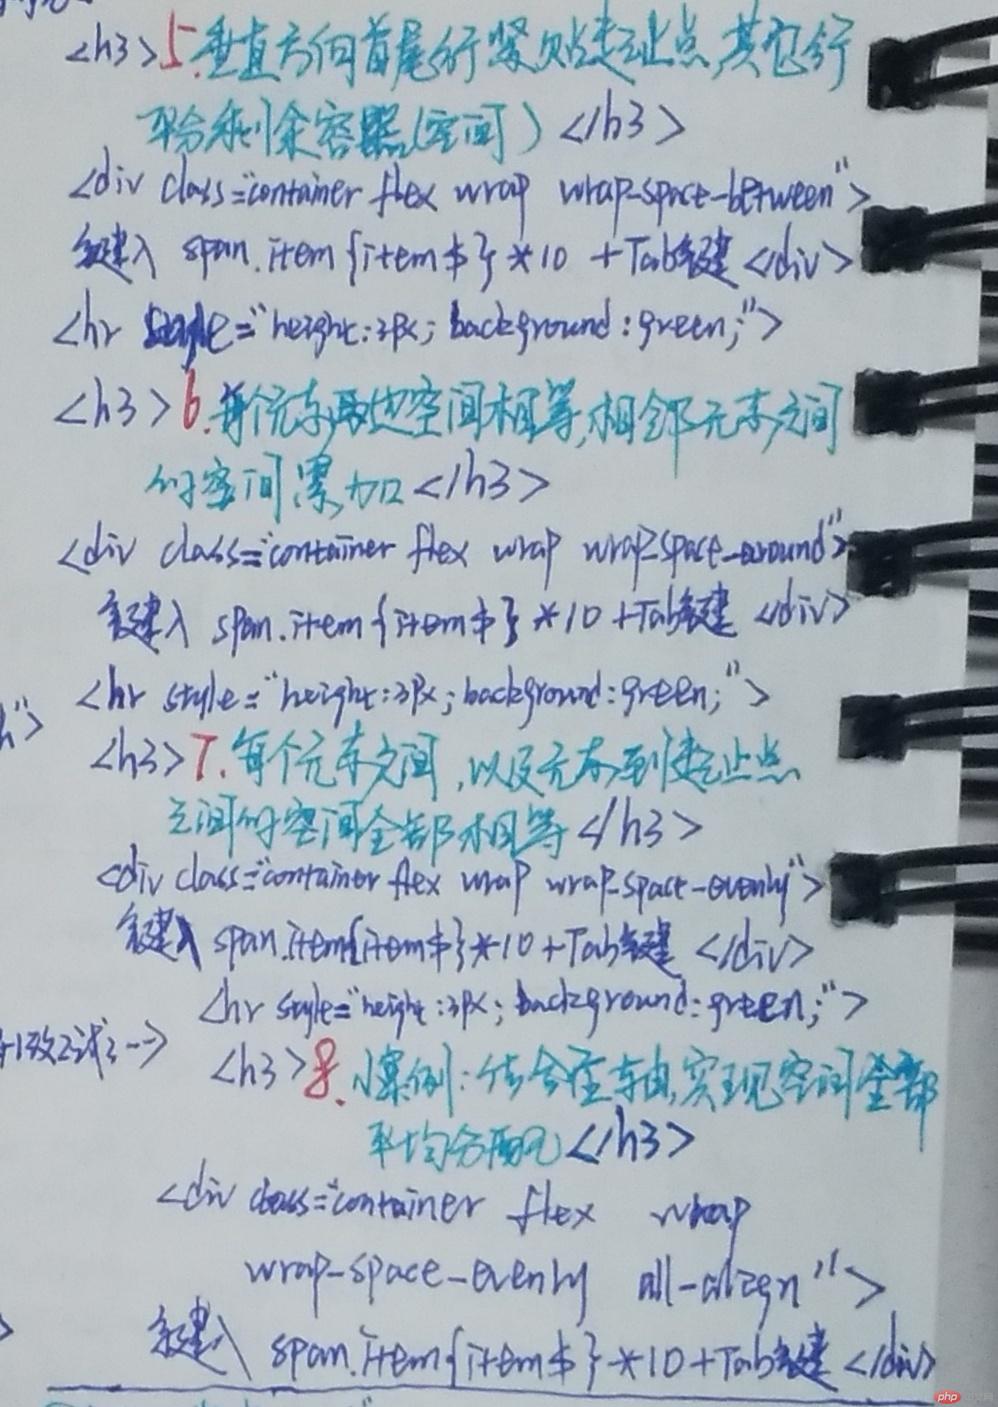 <h3>5.垂直方向首尾行紧贴起止点,其它行
平分剩余容器(空间)</h3>
<div class="container flex wrap wrap-space-between">
键入 span.item{item$}*10 +Tab键 </div>
<hr style="height:3px; background:green;">
<h3>6.每个元素两边空间相等,相邻元素之间
的空间累加</h3>
<div class="container flex wrap wrap-space-around">
键入 span.item{item$}*10 +Tab键 </div>
<hr style="height:3px; background:green;">
<h3>7.每个元素之间,以及元素到起止点
之间的空间全部相等</h3>
<div class="container flex wrap wrap-space-evenly">
键入 span.item{item$}*10 +Tab键 </div>
<hr style="height:3px; background:green;">
<h3>8.小案例:结合主轴,实现空间全部
平均分配</h3>
<div class="container flex wrap
wrap-space-evenly all-align">
键入 span.item{item$}*10+Tab键 </div>
php